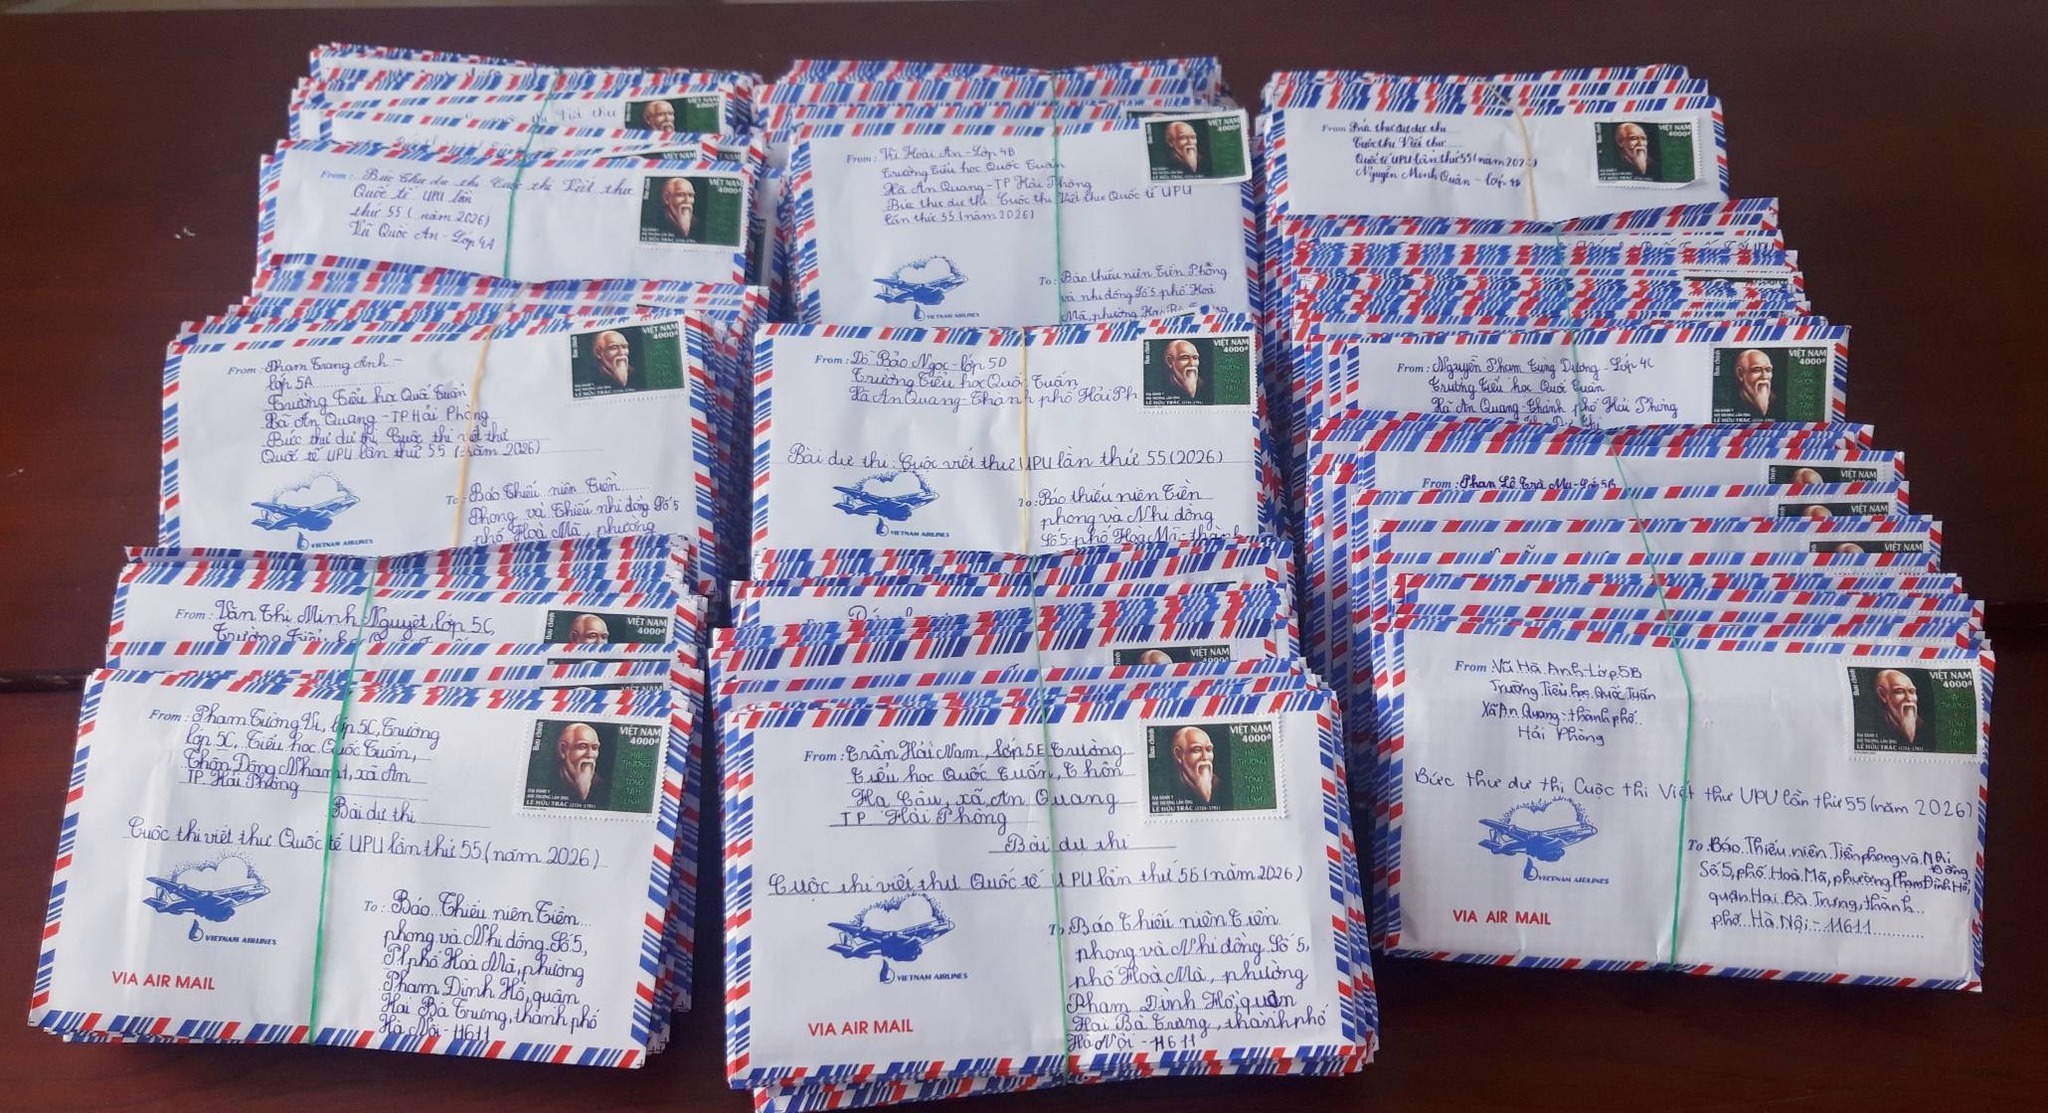 From: Bức thư dự thi Cuộc thi Viết thư
Quốc tế UPU lần
thứ 55 (năm 2026)
Vũ Quốc An - Lớp 4A
VIỆT NAM
4000đ
LÊ HỮU TRÁC (1724-1791)
From: Vũ Hoài An - Lớp 4B
Trường Tiểu học Quốc Tuấn
Xã An Quang - TP Hải Phòng
Bức thư dự thi Cuộc thi Viết thư Quốc tế UPU
lần thứ 55 (năm 2026)
VIỆT NAM
4000đ
To: Báo thiếu niên Tiền Phong
và nhi đồng Số 5 phố Hoà
Mã, phường
VIETNAM AIRLINES
From: Bức thư dự thi
Cuộc thi Viết thư
Quốc tế UPU lần thứ 55 (năm 202
Nguyễn Minh Quân - lớp 4B
VIỆT NAM
4000đ
From: Phạm Trang Anh -
lớp 5A
Trường Tiểu học Quốc Tuấn
Xã An Quang - TP Hải Phòng
Bức thư dự thi Cuộc thi viết thư
Quốc tế UPU lần thứ 55 (năm 2026)
Bưu chính
VIỆT NAM
4000đ
LÊ HỮU TRÁC (1724-1791)
To: Báo Thiếu niên Tiền
Phong và Thiếu nhi đồng Số 5
phố Hoà Mã, phường
VIETNAM AIRLINES
From: Đỗ Bảo Ngọc - lớp 5D
Trường Tiểu học Quốc Tuấn
Xã An Quang - Thành phố Hải Ph
Bưu chính
VIỆT NAM
4000đ
LÊ HỮU TRÁC (1724-1791)
Bài dự thi: Cuộc viết thư UPU lần thứ 55 (2026)
To: Báo thiếu niên Tiền
phong và Nhi đồng
Số 5 phố Hoà Mã - thành
VIETNAM AIRLINES
From: Nguyễn Phạm Tùng Dương - Lớp 4C
Trường Tiểu học Quốc Tuấn
Xã An Quang - Thành phố Hải Phòng
Bưu chính
VIỆT NAM
4000đ
LÊ HỮU TRÁC (1724-1791)
From: Phan Lê Trà My - Lớp 5B
VIỆT NAM
From: Văn Thị Minh Nguyệt lớp 5C,
Bưu chính
VIỆT NAM
4000đ
From: Phạm Tường Vi, lớp 5C, Trường
lớp 5C, Tiểu học Quốc Tuấn,
Thôn Đông Nham 1, xã An
TP. Hải Phòng
Bưu chính
VIỆT NAM
4000đ
HẢI
THƯỢNG
Y
TÔNG
TÂM
LĨNH
ĐẠI DANH Y
HẢI THƯỢNG LÃN ÔNG
LÊ HỮU TRÁC (1724-1791)
Bài dự thi
Cuộc thi viết thư Quốc tế UPU lần thứ 55 (năm 2026)
VIETNAM AIRLINES
VIA AIR MAIL
To: Báo Thiếu niên Tiền
phong và Nhi đồng Số 5,
phố Hoà Mã, phường
Phạm Đình Hổ, quận
Hai Bà Trưng, thành phố
Hà Nội - 11611
From: Trần Hải Nam, lớp 5E Trường
Tiểu học Quốc Tuấn, Thôn
Hạ Câu, xã An Quang
TP Hải Phòng
Bưu chính
VIỆT NAM
4000đ
HẢI
THƯỢNG
Y
TÔNG
TÂM
LĨNH
ĐẠI DANH Y
HẢI THƯỢNG LÃN ÔNG
LÊ HỮU TRÁC (1724-1791)
Bài dự thi
Cuộc thi viết thư Quốc tế UPU lần thứ 55 (năm 2026)
VIETNAM AIRLINES
VIA AIR MAIL
To: Báo Thiếu niên Tiền
phong và Nhi đồng Số 5,
phố Hoà Mã, phường
Phạm Đình Hổ, quận
Hai Bà Trưng, thành phố
Hà Nội - 11611
From: Vũ Hà Anh - Lớp 5B
Trường Tiểu học Quốc Tuấn
Xã An Quang - thành phố
Hải Phòng
Bưu chính
VIỆT NAM
4000đ
HẢI
THƯỢNG
Y
TÔNG
TÂM
LĨNH
ĐẠI DANH Y
HẢI THƯỢNG LÃN ÔNG
LÊ HỮU TRÁC (1724-1791)
Bức thư dự thi Cuộc thi Viết thư UPU lần thứ 55 (năm 2026)
VIETNAM AIRLINES
VIA AIR MAIL
To: Báo Thiếu niên Tiền phong và Nhi đồng,
Số 5, phố Hoà Mã, phường Phạm Đình Hổ,
quận Hai Bà Trưng, thành
phố Hà Nội - 11611